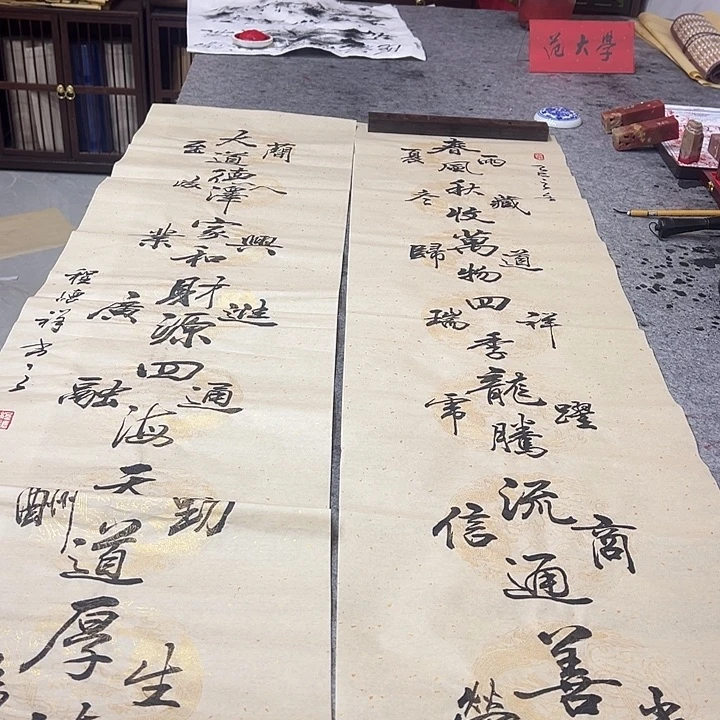 范大學
春風夏雨
秋收冬藏
萬物歸道
四季瑞祥
龍騰虎躍
流通信商
善
大道至簡
德澤
家和業興
財源廣進
四海融通
天道酬勤
厚生